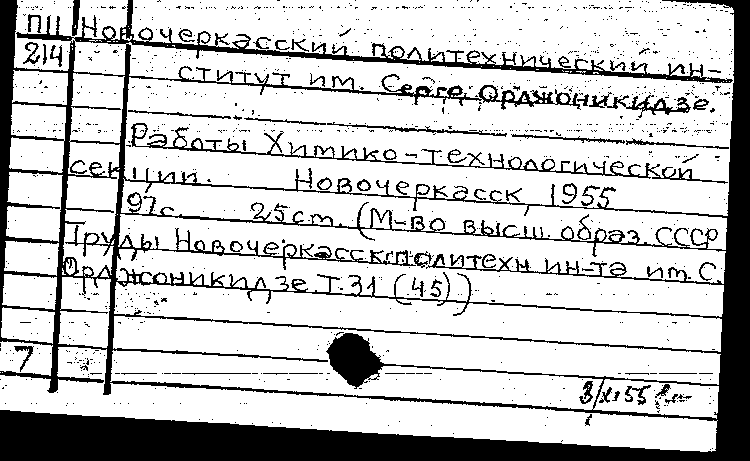 ПII Новочеркасский политехнический ин-
214 ститут им. Серго Орджоникидзе.
Работы Химико-технологической
секции. Новочеркасск, 1955
97с. 25 см. (М-во высш. образ. СССР
Труды Новочеркасск. политехн ин-та им. С.
Орджоникидзе. Т.31 (45))
7